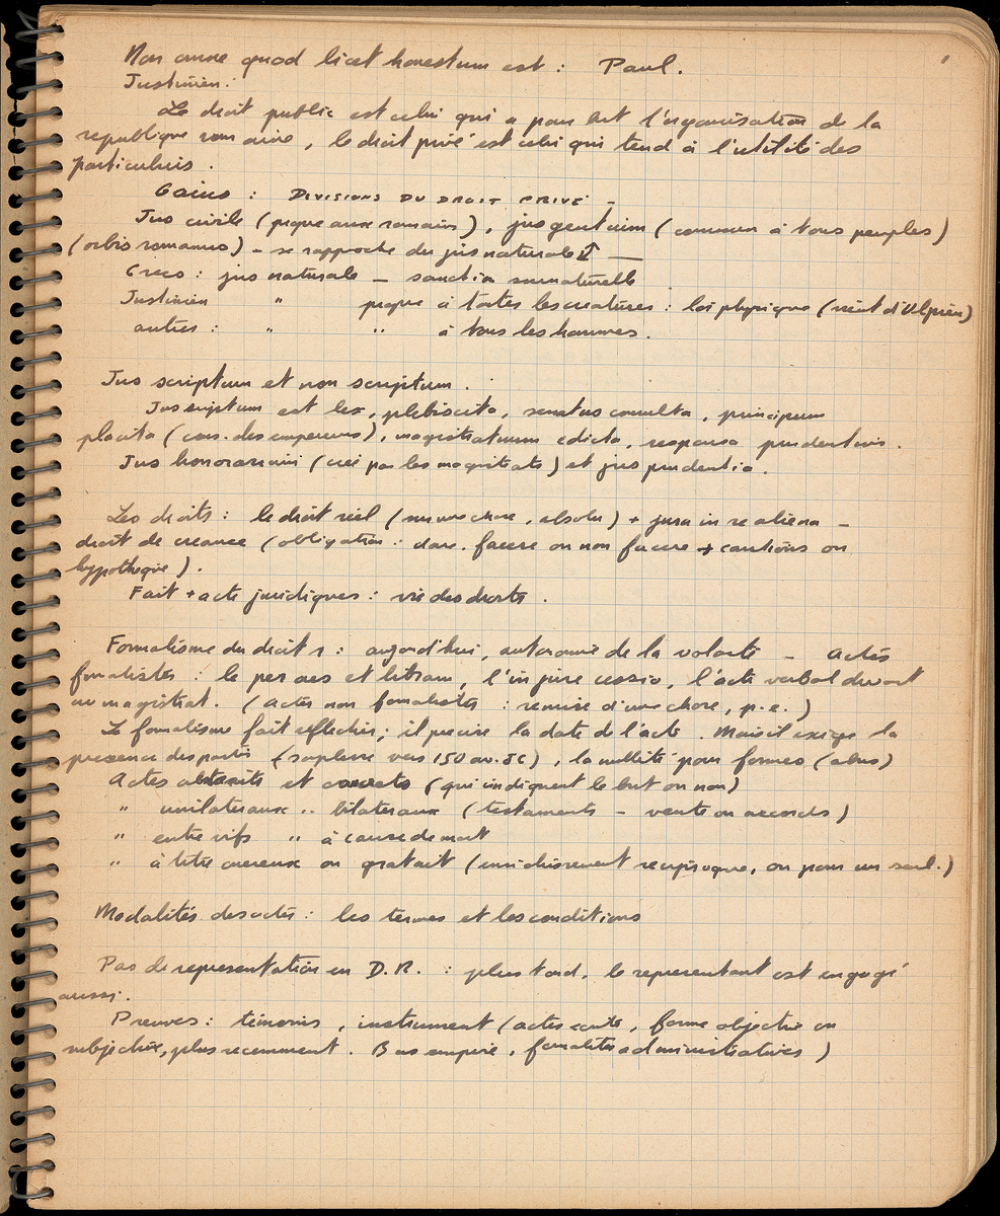 Non omne quod licet honestum est : Paul.
Justinien :
Le droit public est celui qui a pour but l'organisation de la
republique romaine, le droit privé est celui qui tend à l'utilité des
particuliers.
Gaius : DIVISIONS DU DROIT PRIVÉ -
Jus civile (propre aux romains), jus gentium (commun à tous peuples)
(orbis romanus) - se rapproche du jus naturale
Cicero : jus naturale - sanction surnaturelle
Justinien " propre à toutes les creatures : loi physique (vient d'Ulpien)
autres : " " à tous les hommes.
Jus scriptum et non scriptum.
Jus scriptum est lex, plebiscita, senatus consulta, principum
placita (cons. des empereurs), magistratuum edicta, responsa prudentium.
Jus honorarium (créé par les magistrats) et jus prudentia.
Les droits : le droit réel (sur une chose, absolu) + jura in re aliena -
droit de creance (obligation : dare, facere ou non facere + cautions ou
hypotheque).
Fait + acte juridiques : vie des droits.
Formalisme du droit r : aujourd'hui, autonomie de la volonté - Actes
formalistes : le per aes et libram, l'in jure cessio, l'acte verbal devant
un magistrat. (Actes non formalistes : remise d'une chose, p.e.)
Le formalisme fait reflechir; il precise la date de l'acte. Mais il exige la
presence des parties (souplesse vers 150 av. JC), la nullité pour formes (abus)
Actes abstraits et concrets (qui indiquent le but ou non)
" unilateraux .. bilateraux (testaments - vente ou accords)
" entre vifs " à cause de mort
" à titre onereux ou gratuit (enrichissement reciproque, ou pour un seul.)
Modalités des actes : les termes et les conditions
Pas de representation en D.R. : plus tard, le representant est engagé
aussi.
Preuves : témoins, instrument (actes ecrits, forme objective ou
subjective, plus recemment. Bas empire, formalités administratives)